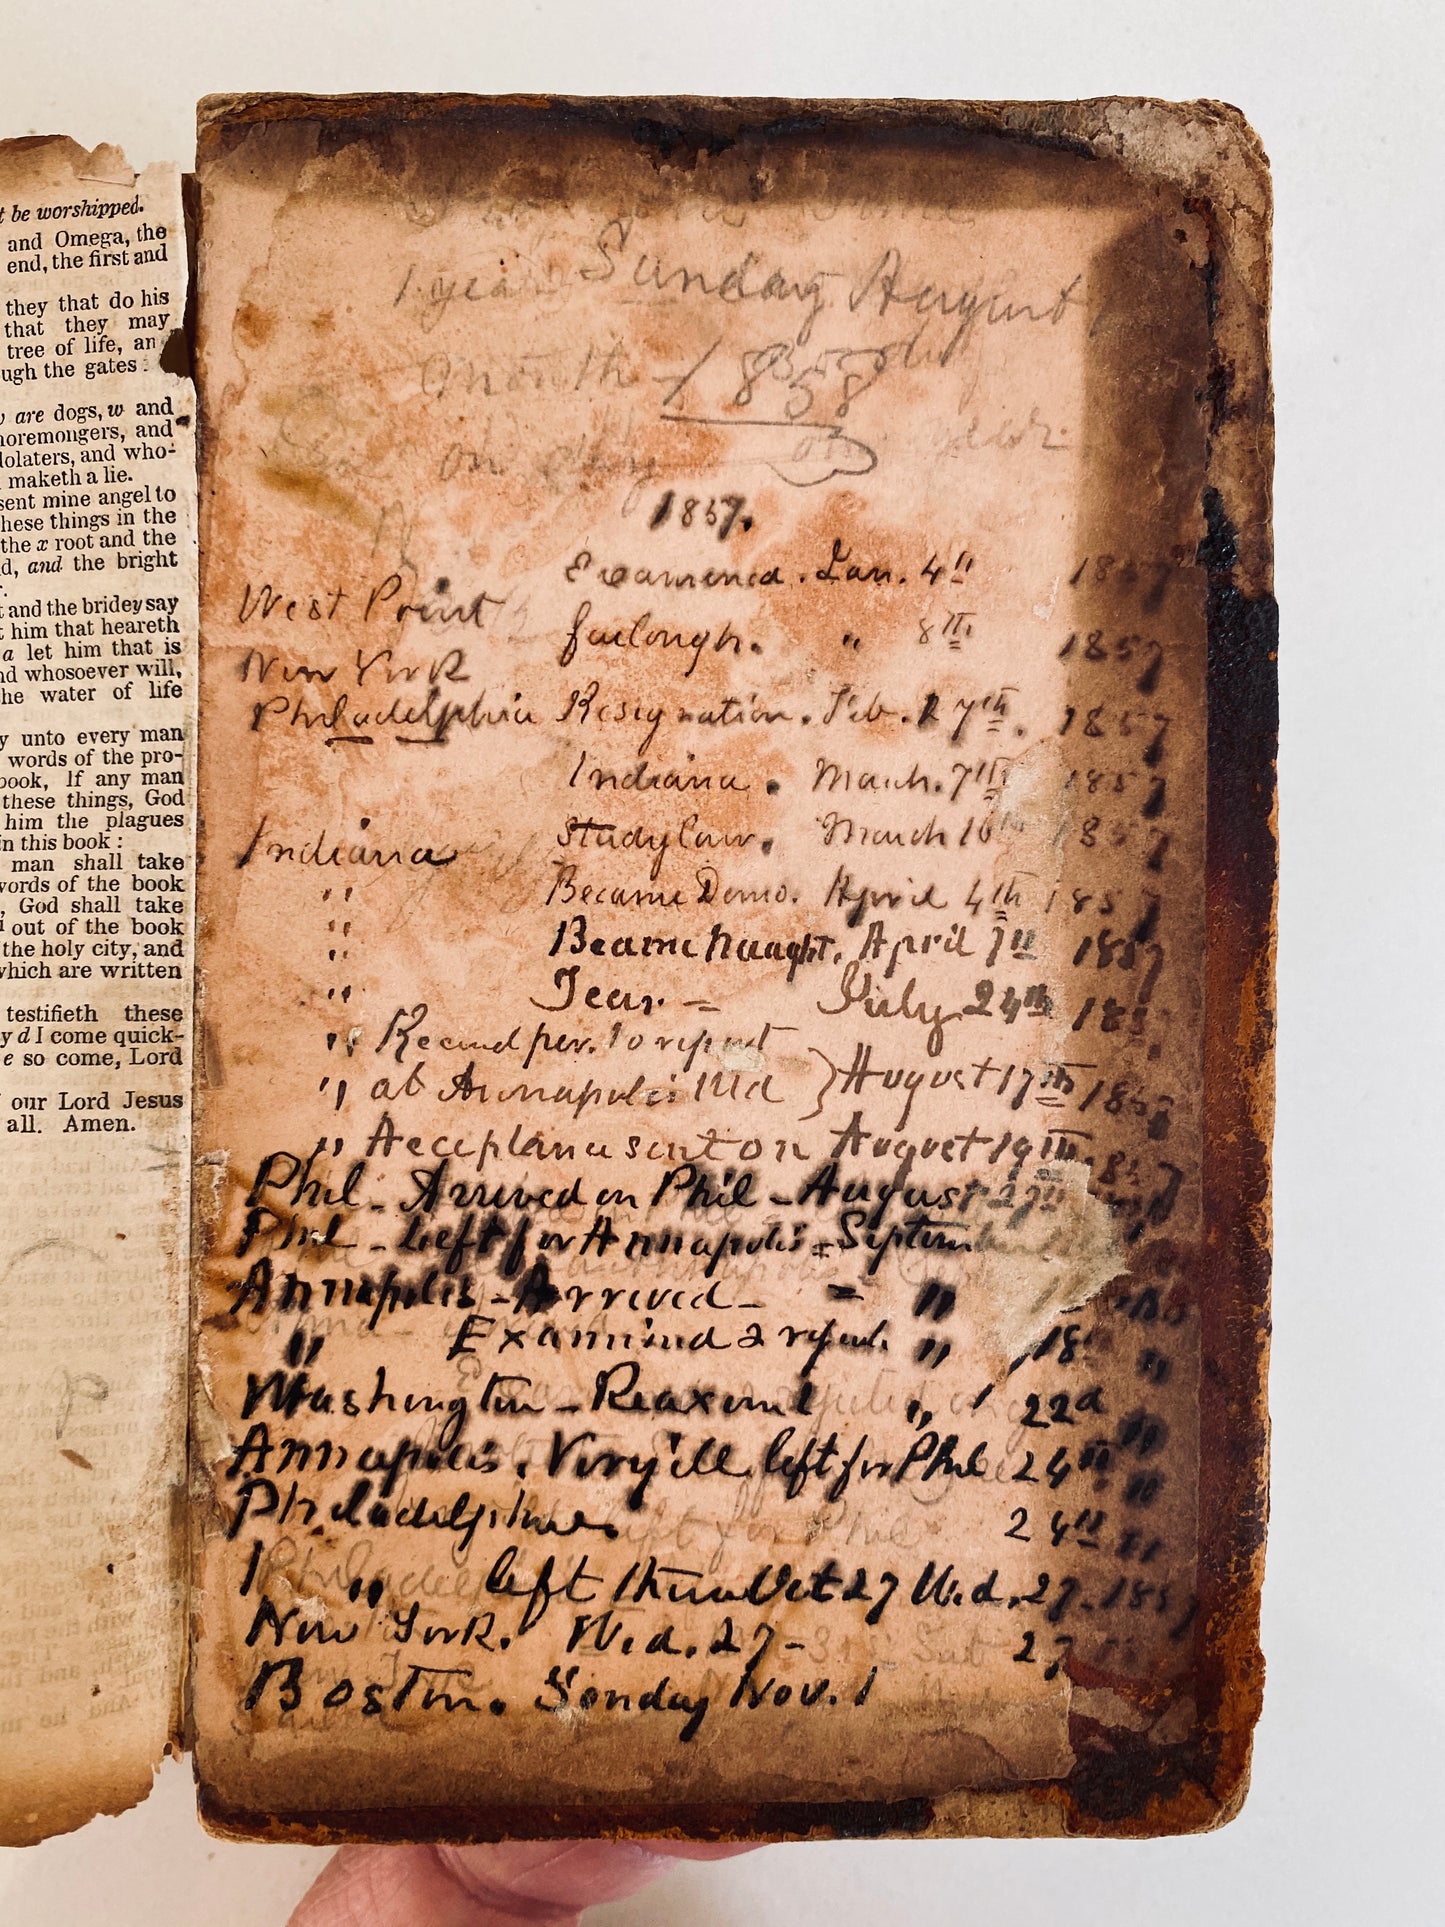 t be worshipped.
and Omega, the
end, the first and
they that do his
that they may
tree of life, an
ugh the gates:
are dogs, w and
horemongers, and
dolaters, and who-
maketh a lie.
sent mine angel to
hese things in the
the x root and the
d, and the bright
t and the bride y say
t him that heareth
a let him that is
nd whosoever will,
he water of life
y unto every man
words of the pro-
book, If any man
these things, God
him the plagues
n this book:
man shall take
words of the book
, God shall take
out of the book
the holy city, and
which are written
testifieth these
y d I come quick-
e so come, Lord
our Lord Jesus
all. Amen.
1 year Sunday August
month 1858
on day
1857.
Examined. Jan. 4th 1857
West Point
furlough. " 8th. 1857
New York
Philadelphia Resignation. Feb. 27th. 1857
Indiana. March. 7th 1857
Indiana Study law. March 10th 1857
" Became Demo. April 4th 1857
" Became naught. April 7th 1857
" Tear. = July 24th 18
" Recund per. to report
" at Annapolis Md } August 17th 1857
" Acceptance sent on August 19th. 857
Phil - Arrived on Phil - August 27th
Phil - Left for Annapolis = Septem
Annapolis - Arrived - = "
" Examined & reject. " 18 "
Washington - Reaxemd " 22d "
Annapolis. Very ill left for Phil 24th "
Philadelphia 24th "
" left there Oct 27 Wed. 27. 1857
New York. Wed. 27 - 27
Boston. Sonday Nov. 1